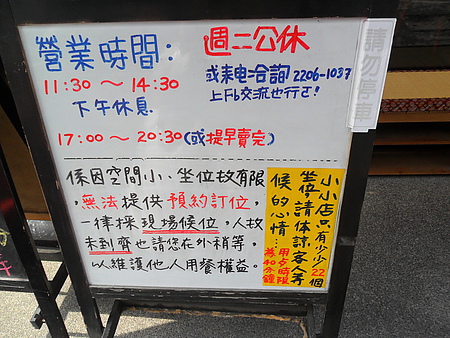 營業時間:
週二公休
11:30～14:30
或來电洽詢2206-1037
下午休息
上Fb交流也行ㄛ!
17:00～20:30(或提早賣完)
請勿停車
係因空間小、坐位故有限,
無法提供預約訂位,
一律採現場候位,人故
未到齊也請您在外稍等,
以維護他人用餐權益。
小小店只有少少22個
坐位,請体諒客人等
候的心情…
用夕時限
為40分鐘